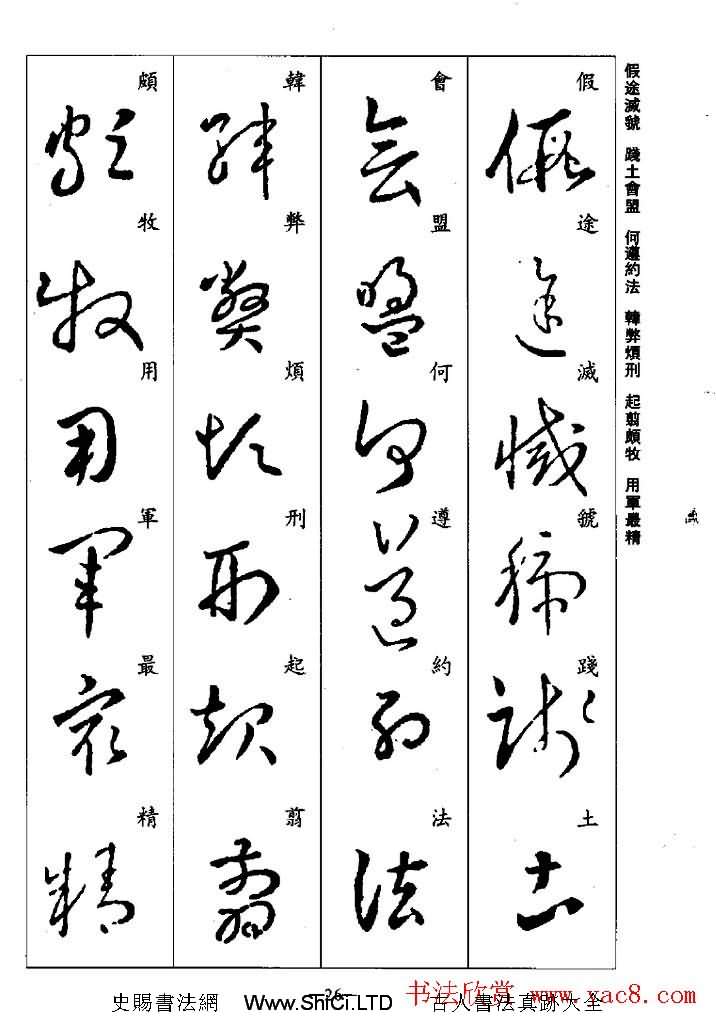 假途滅虢 踐土會盟 何遵約法 韓弊煩刑 起翦頗牧 用軍最精
假途滅虢踐土
會盟何遵約法
韓弊煩刑起翦
頗牧用軍最精
-26-
史賜書法網 Www.ShiCi.LTD 古人書法真跡大全
书法欣赏 www.yac8.com